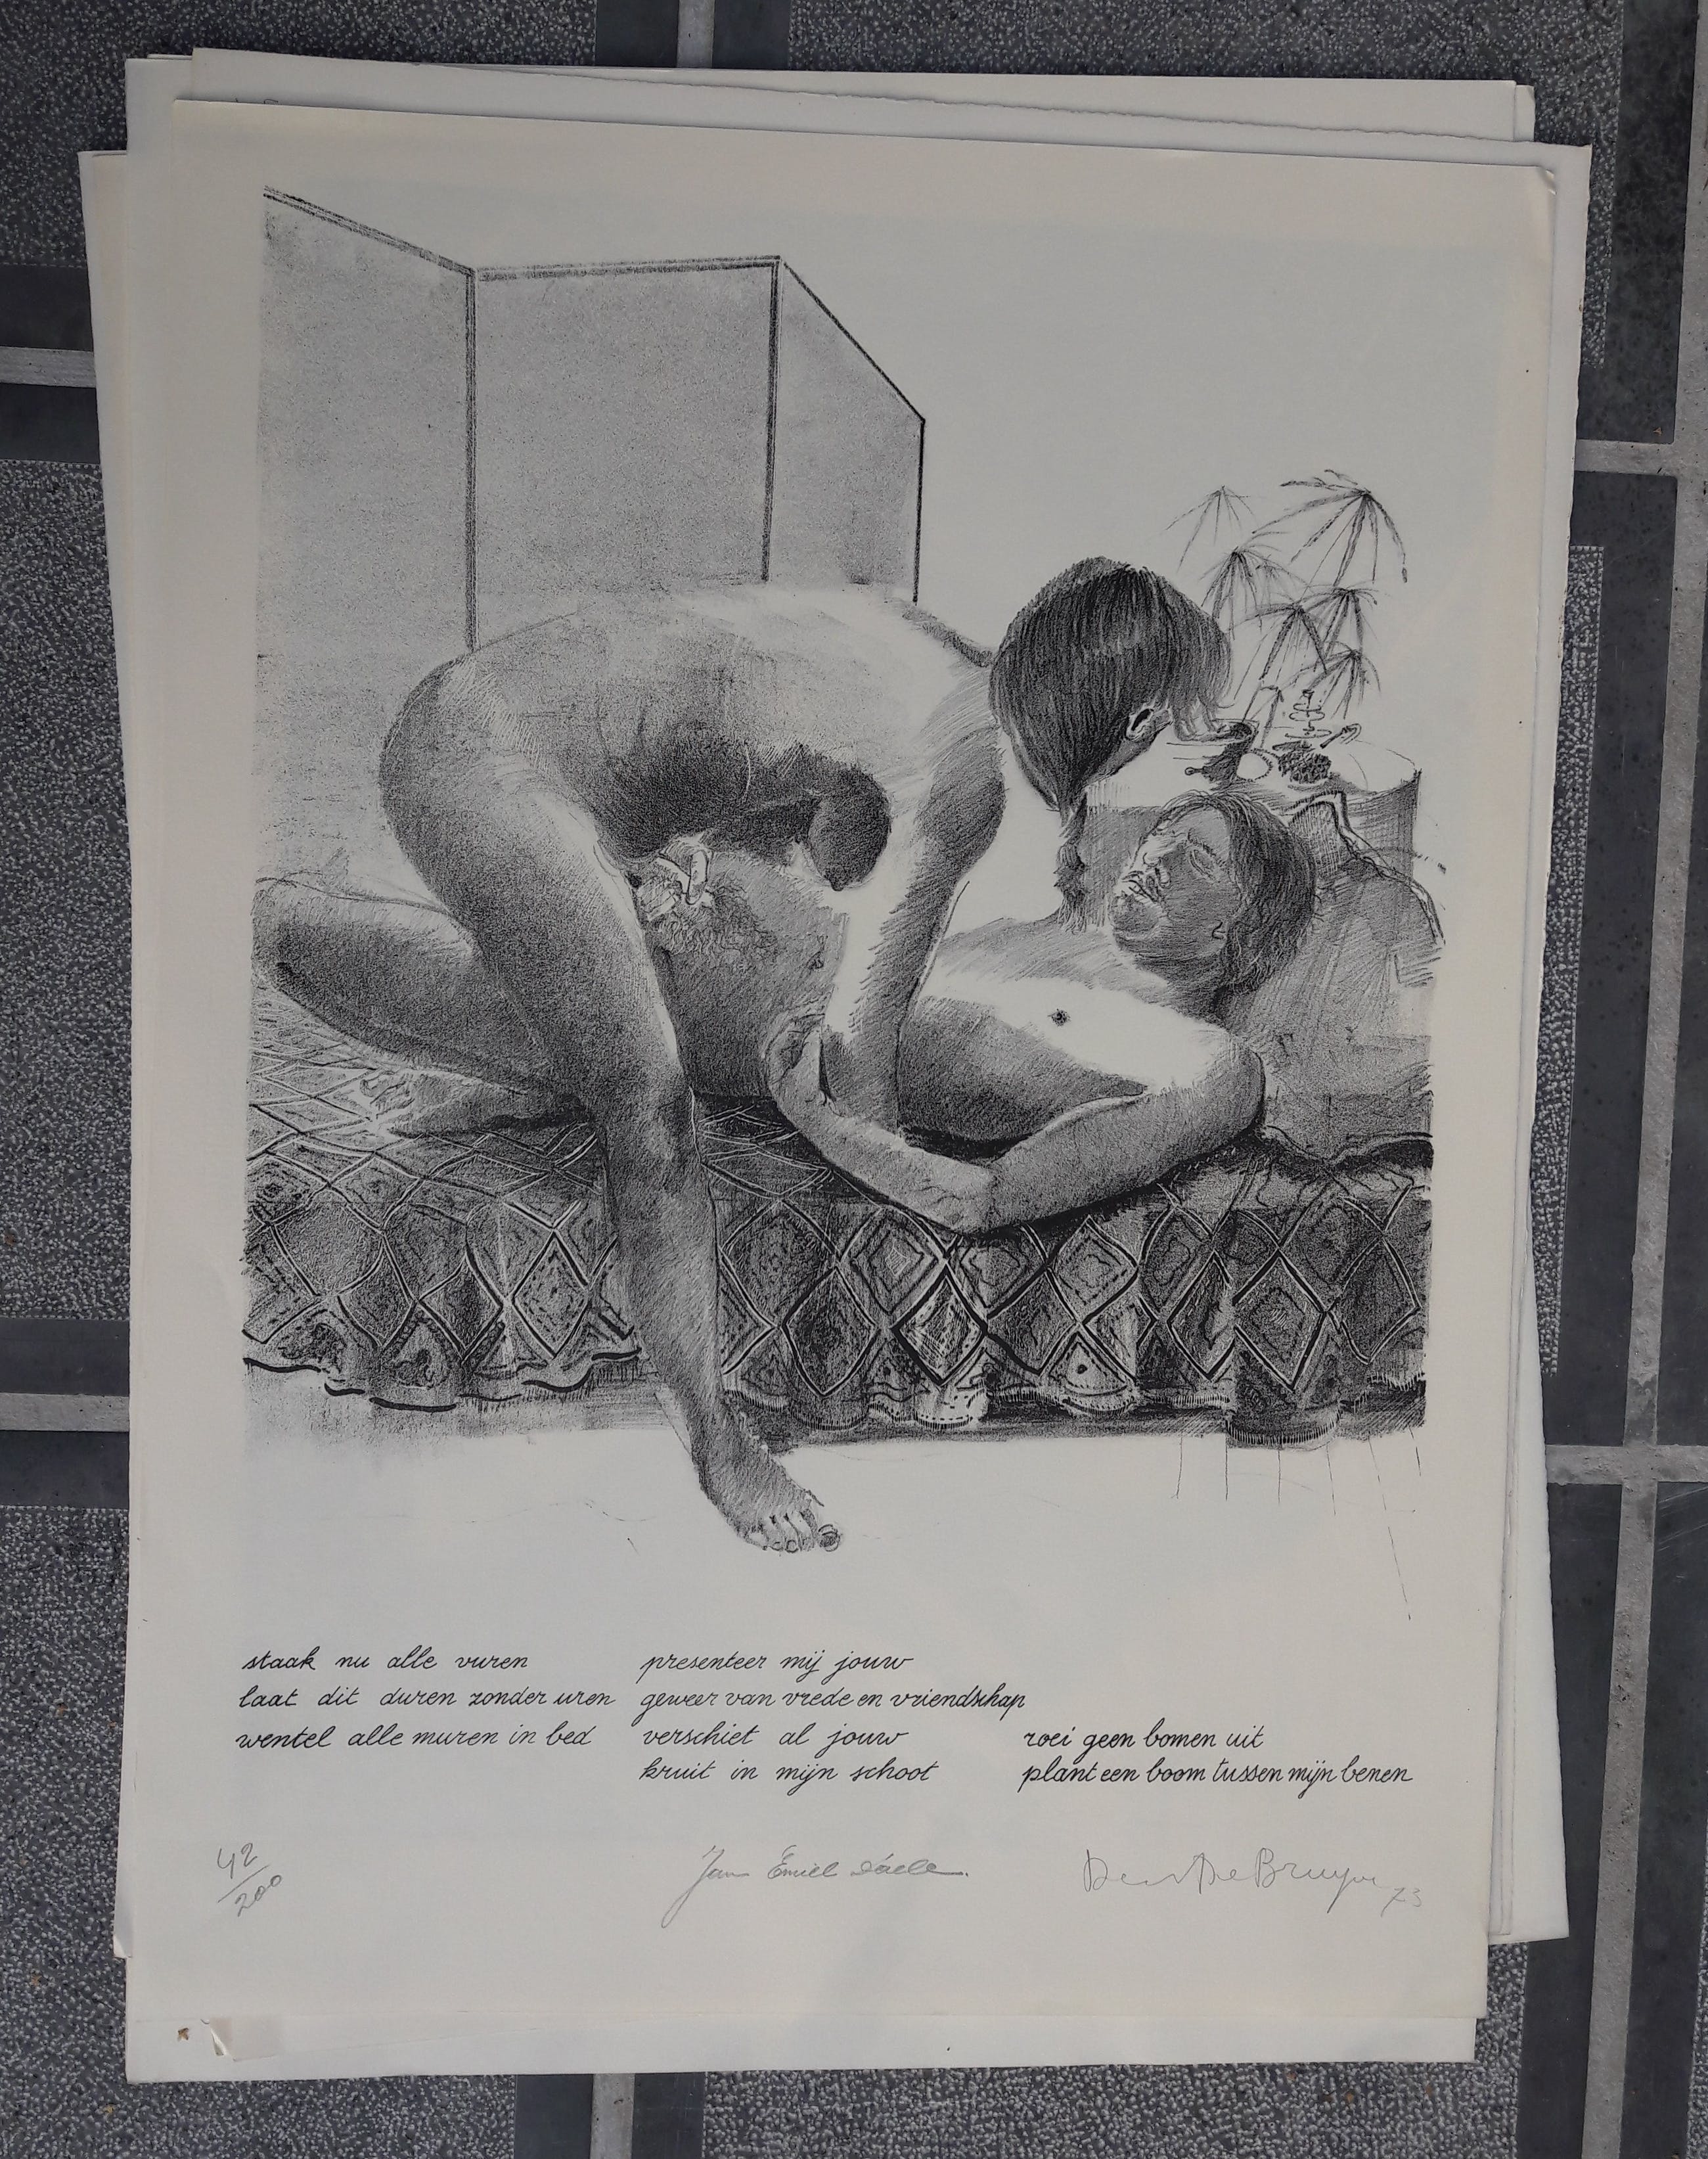 staak nu alle vuren
laat dit duren zonder uren
wentel alle muren in bed
presenteer mij jouw
geweer van vrede en vriendschap
verschiet al jouw
kruit in mijn schoot
roei geen bomen uit
plant een boom tussen mijn benen
42/200
Jan Emiel Daele.
De Bruyne 73